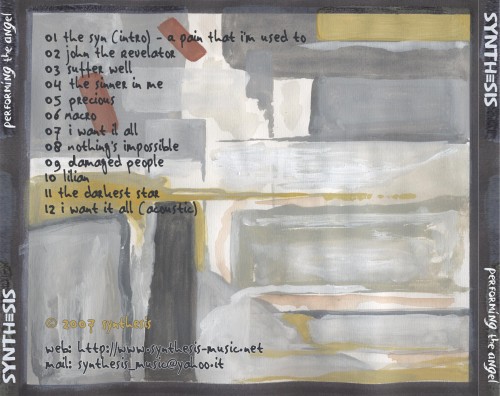 01 the syn (intro) - a pain that i'm used to
02 john the revelator
03 suffer well
04 the sinner in me
05 precious
06 macro
07 i want it all
08 nothing's impossible
09 damaged people
10 lilian
11 the darkest star
12 i want it all (acoustic)
© 2007 synthesis
web: http://www.synthesis-music.net
mail: synthesis_music@yahoo.it
SYNTHESIS
performing the angel
SYNTHESIS
performing the angel